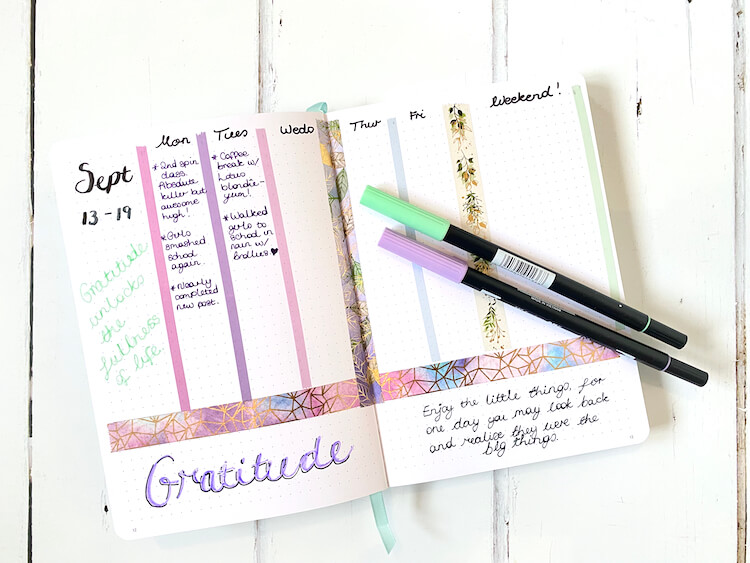 Sept
13-19
Gratitude
unlocks
the
fullness
of life.
Mon
*2nd spin
class.
Absolute
killer but
awesome
high!
*Girls
smashed
school
again.
*Nearly
completed
new post.
Tues
*Coffee
break w/
Lotus
blondie-
yum!
*Walked
girls to
school in
rain w/
brollies♥
Weds
Thur
Fri
Weekend!
Gratitude
Enjoy the little things, for
one day you may look back
and realise they were the
big things.